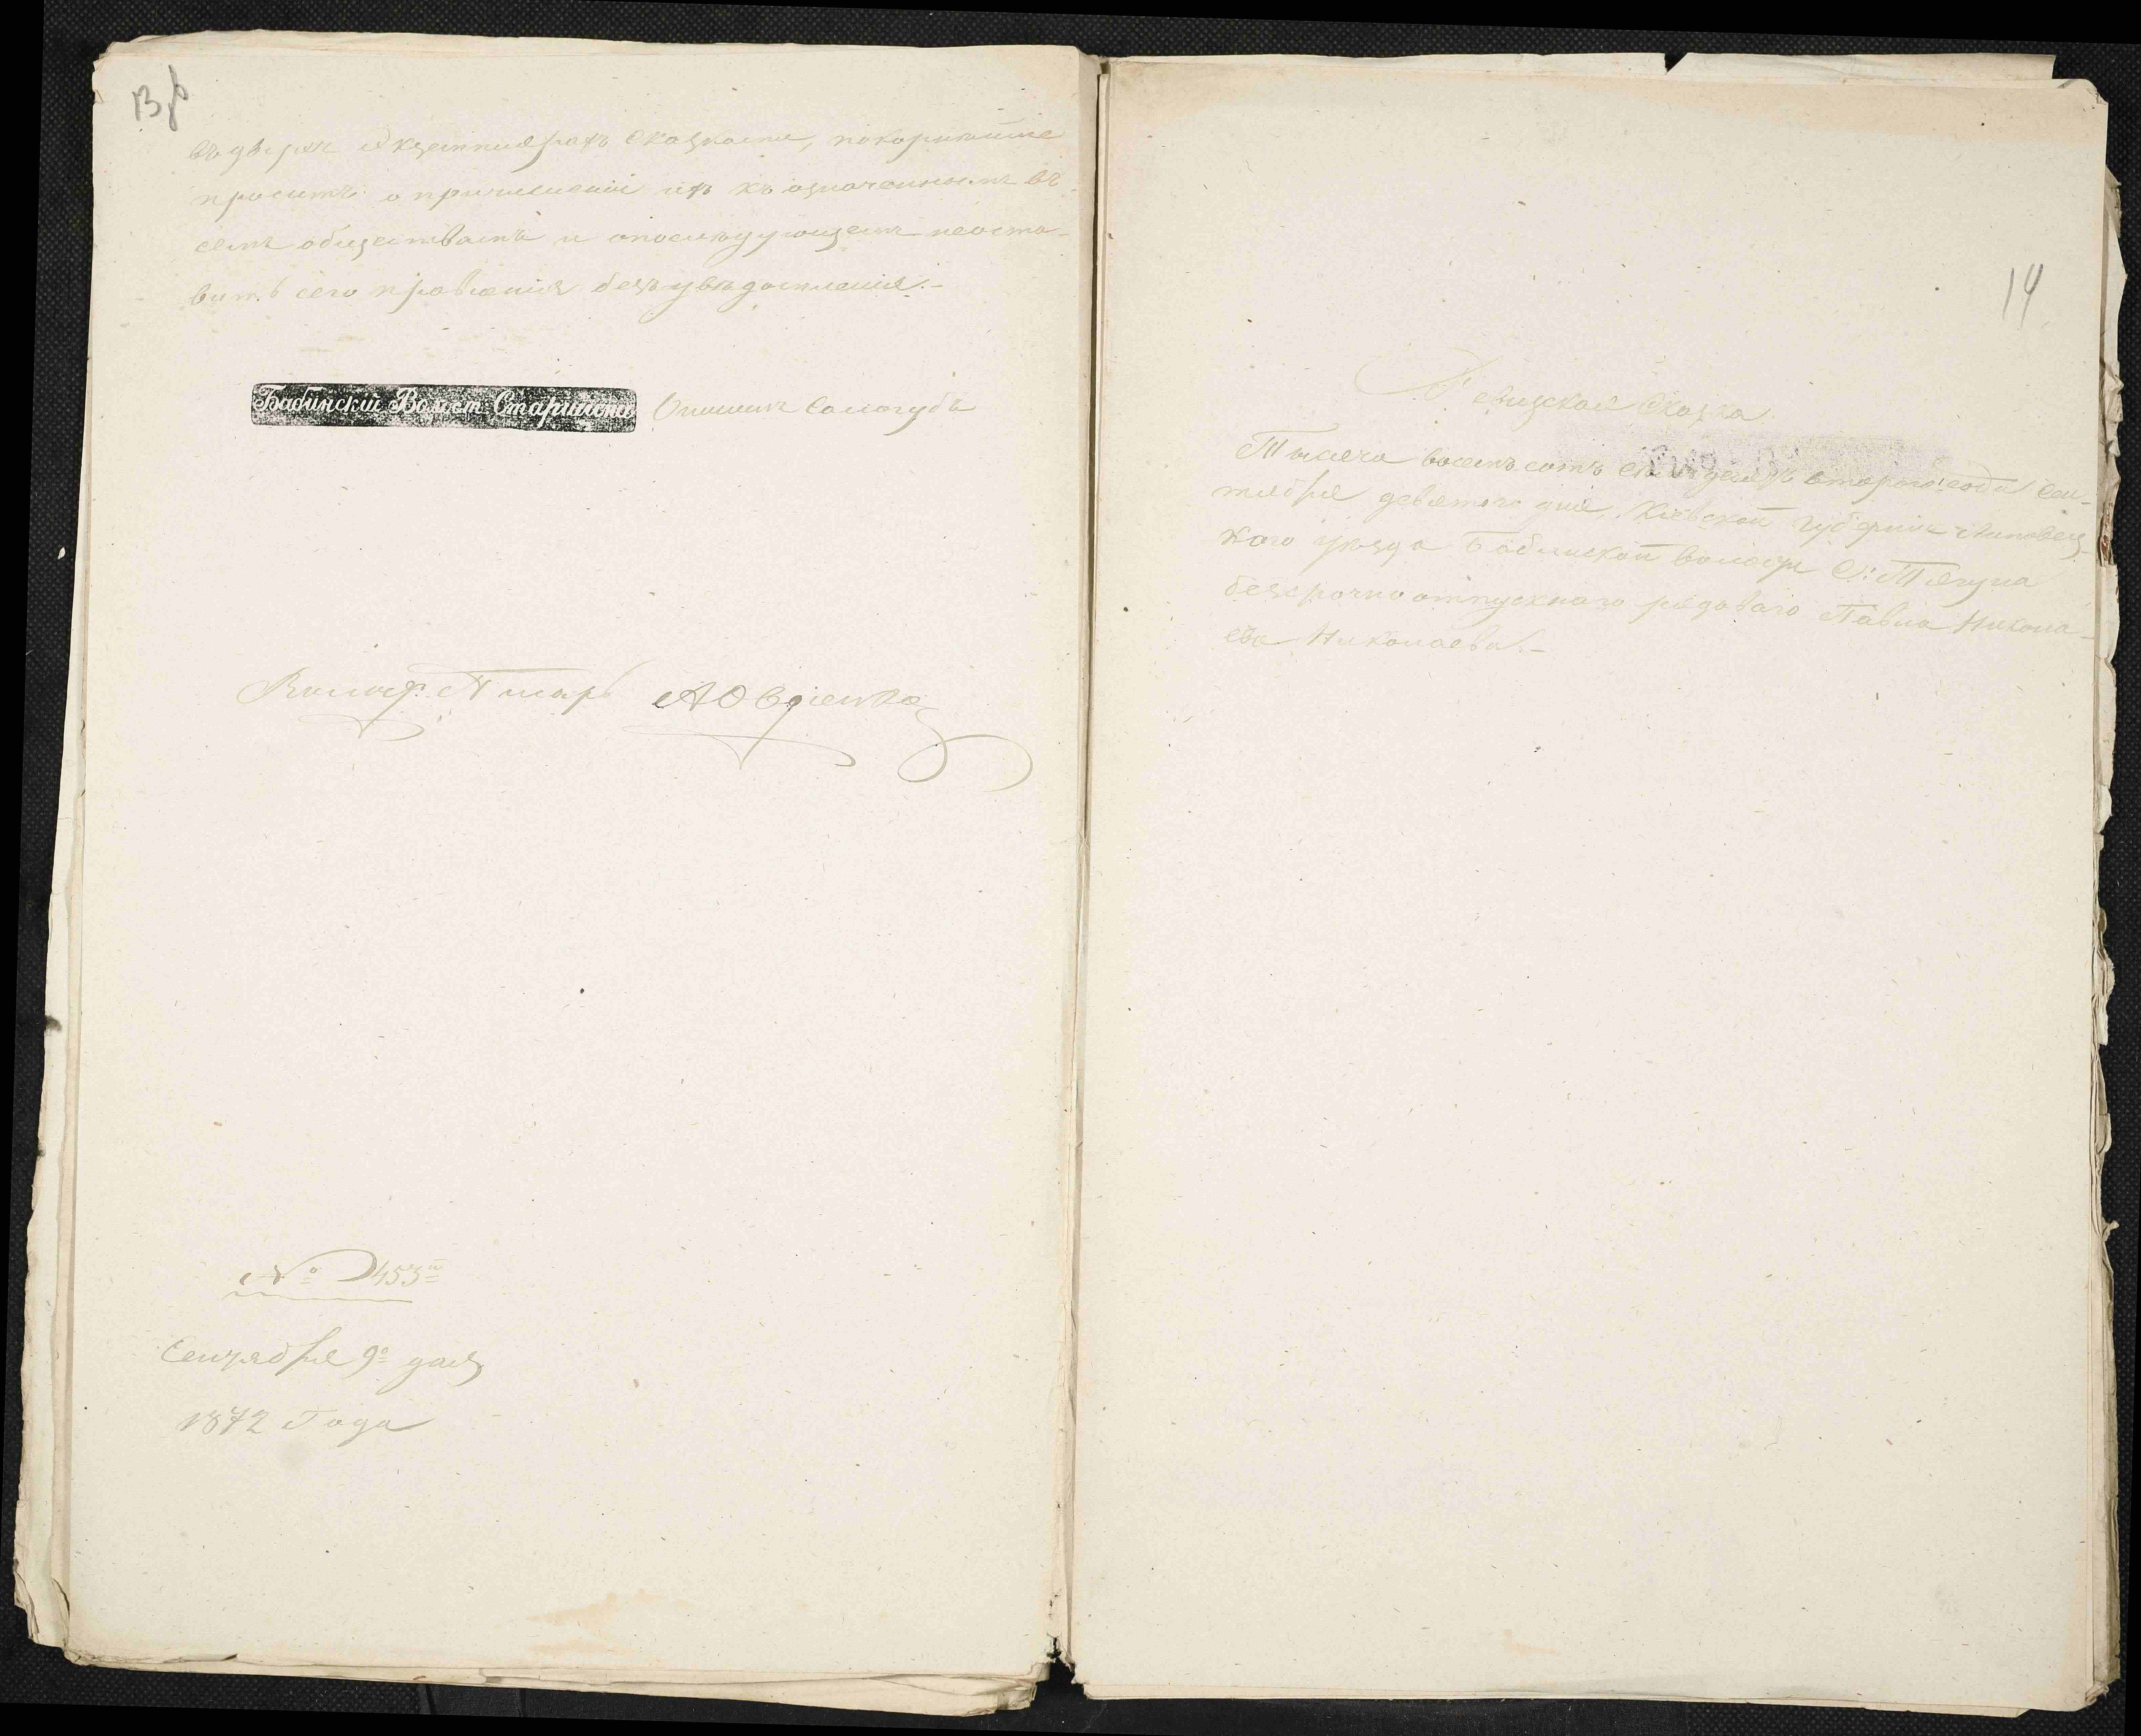 въ двухъ экземплярахъ сказками, покорнѣйше
проситъ о причисленіи ихъ къ означеннымъ въ
семъ обществамъ и о послѣдующемъ неоста-
вить сего правленія безъ увѣдомленія.-
Бабинскій Волост. Старшина Сологубъ
Волост. Писарь Авдіенко
№ 2453
Сентября 9 дня
1872 Года
14
Ревизская Сказка
Тысяча восемьсотъ семьдесятъ втораго года Сен-
тября девятаго дня, Кіевской губерніи Липовец-
каго уѣзда Бабинской волости С: Тягуна
безсрочно отпускнаго рядоваго Павла Никола-
ева Николаева.-